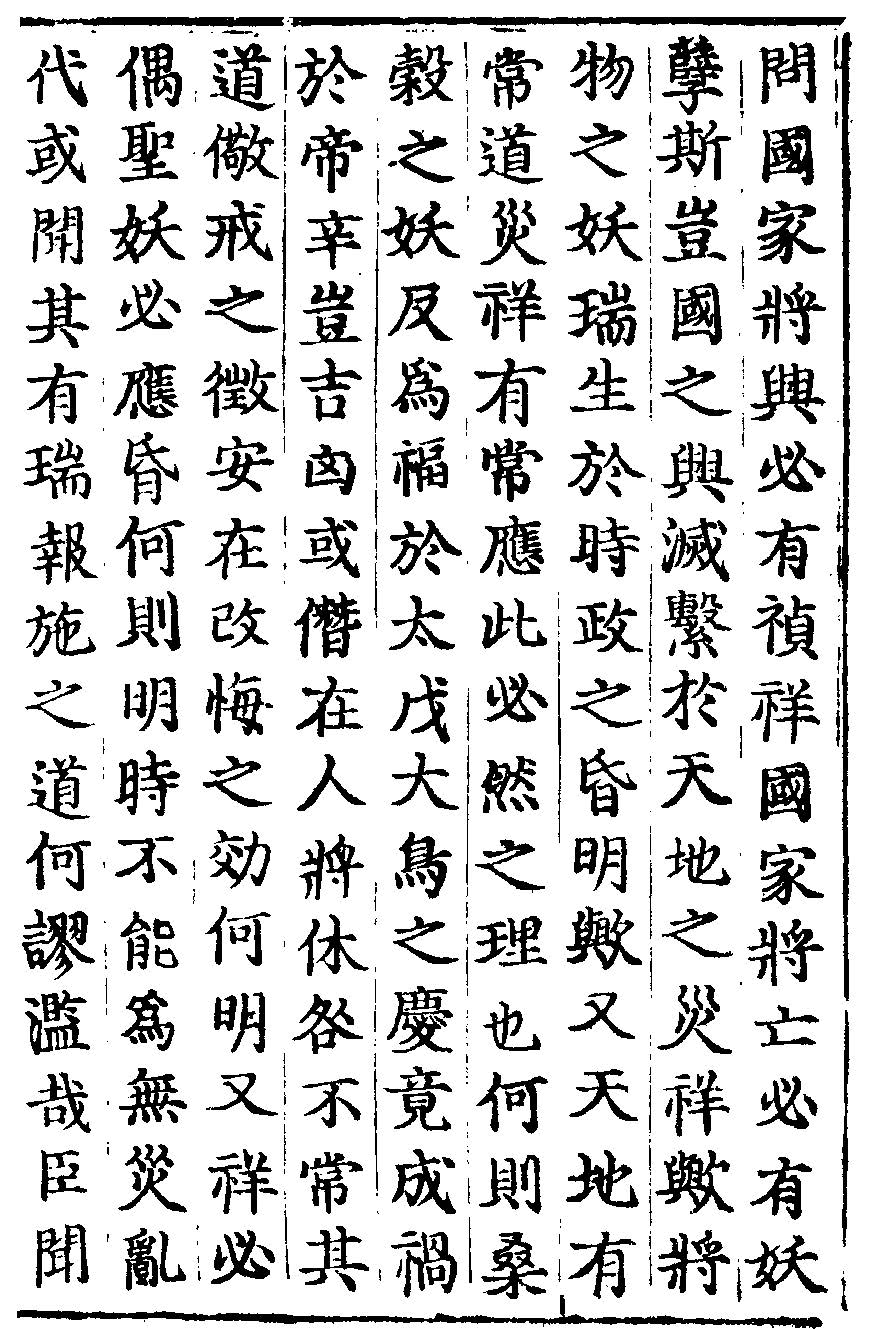 問國家將興必有禎祥國家將亡必有妖
孽斯豈國之興滅繫於天地之災祥歟將
物之妖瑞生於時政之昏明歟又天地有
常道災祥有常應此必然之理也何則桑
榖之妖反爲福於太戊大鳥之慶竟成禍
於帝辛豈吉凶或僭在人將休咎不常其
道儆戒之徵安在改悔之効何明又祥必
偶聖妖必應昏何則明時不能爲無災亂
代或聞其有瑞報施之道何謬濫哉臣聞